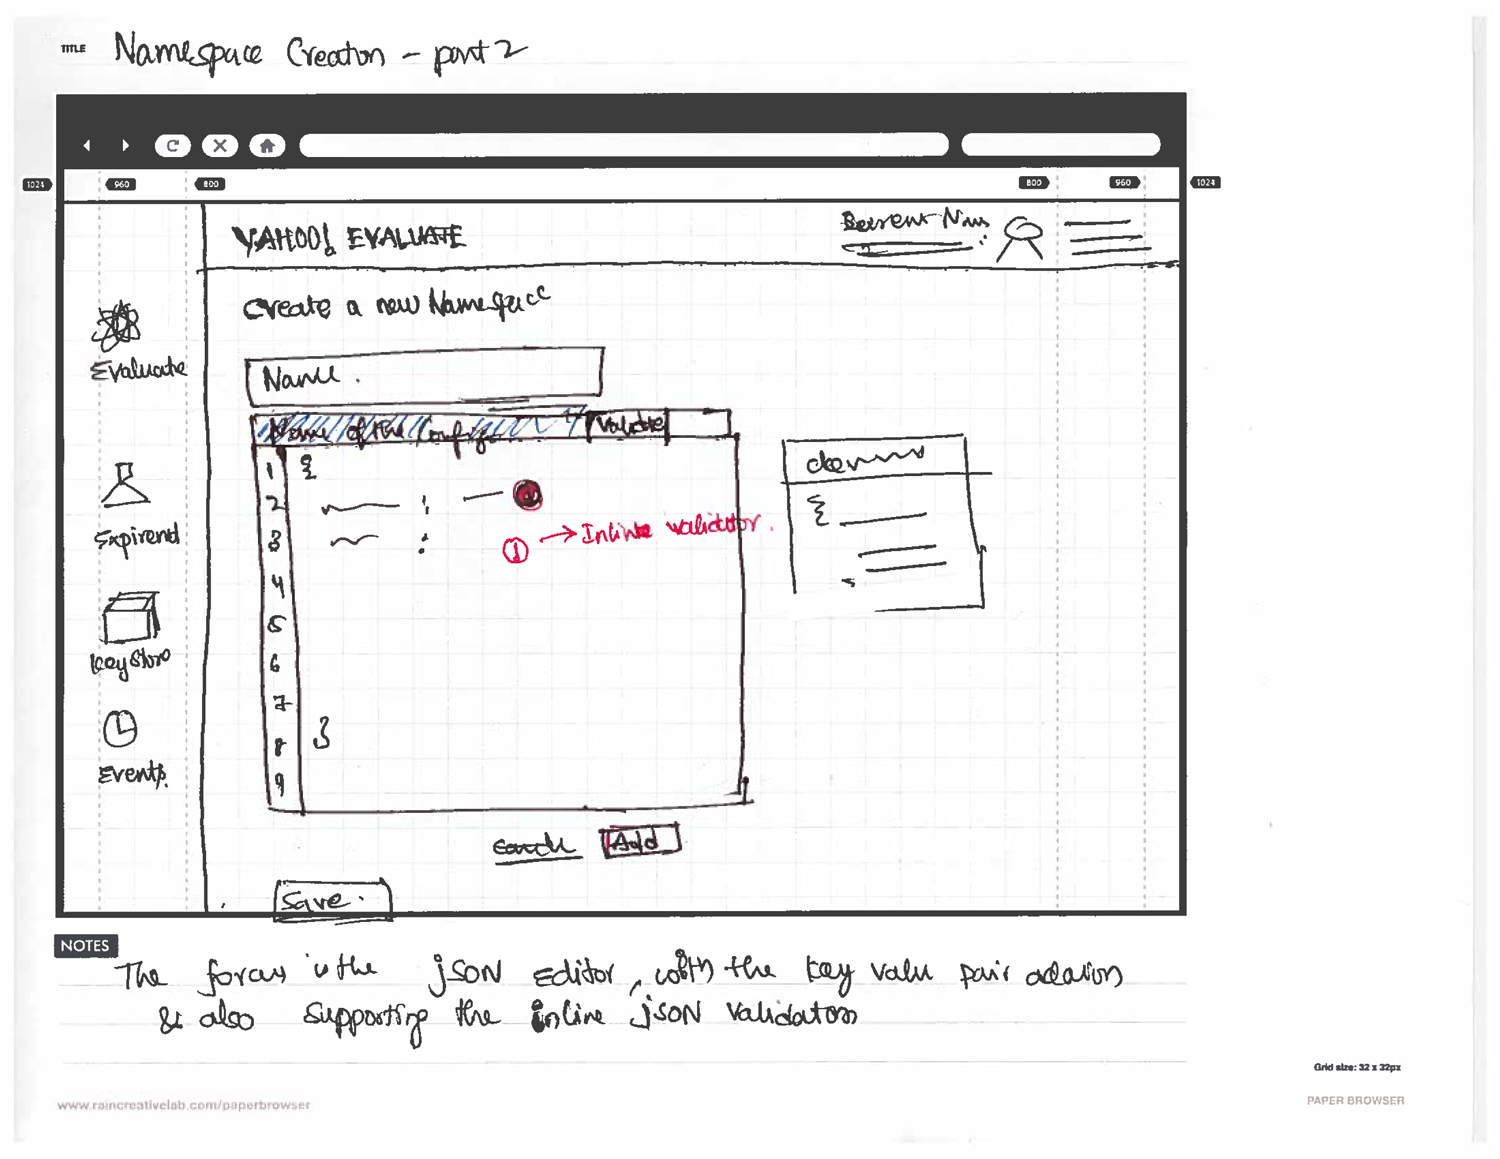 TITLE Namespace Creation - part 2
1024 960 800 800 960 1024
YAHOO! EVALUATE
Create a new Namespace
Evaluate
Name.
Name of the Config
Validate
1 {
2 :
3 :
① → Inline validator.
4
5
6
7
8 }
9
{
Keystore
Events
Add
Save.
NOTES
The focus is the json Editor, with the key value pair addition
& also supporting the inline json validators
Grid size: 32 x 32px
www.raincreativelab.com/paperbrowser
PAPER BROWSER